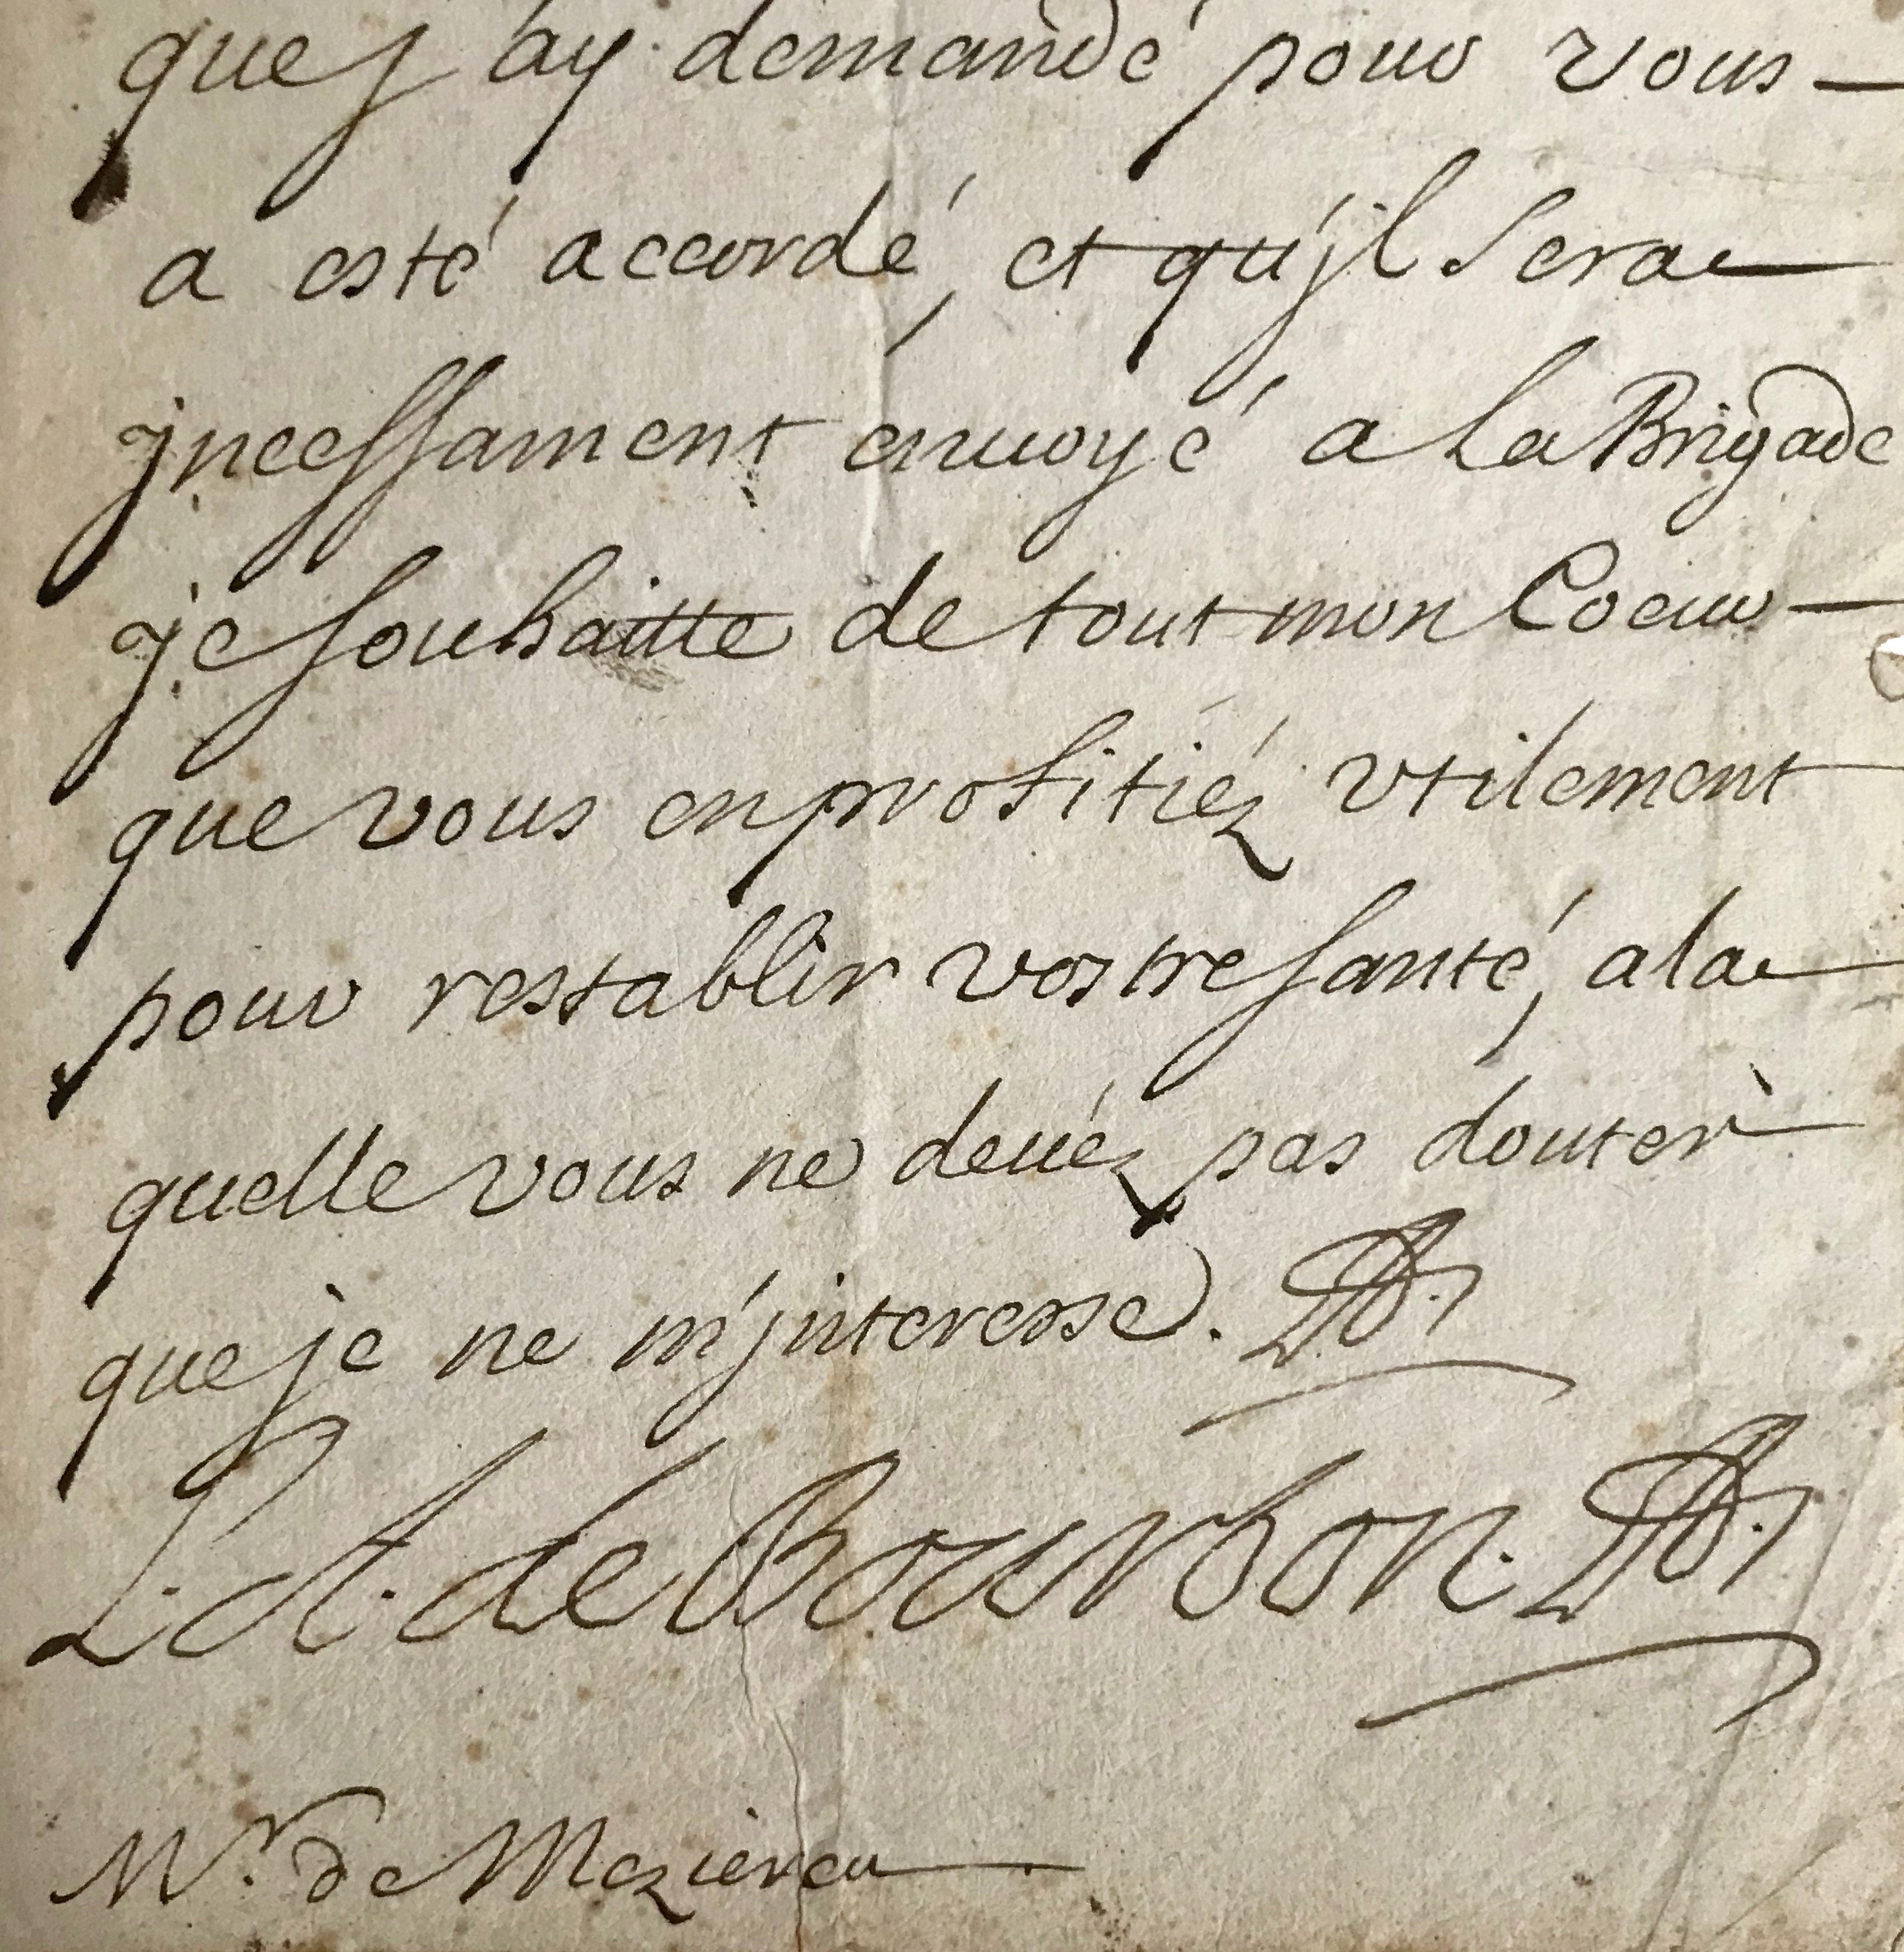 que j'ay demandé pour vous
a esté accordé, et qu'jl sera
jncessament enuoyé a la Brigade
je souhaitte de tout mon Coeur
que vous en profitiéz vtilement
pour restablir vostre santé, a la
quelle vous ne deuéz pas douter
que je ne m'jnteresse.
L. A. de Bourbon.
Mr. de Mezieres